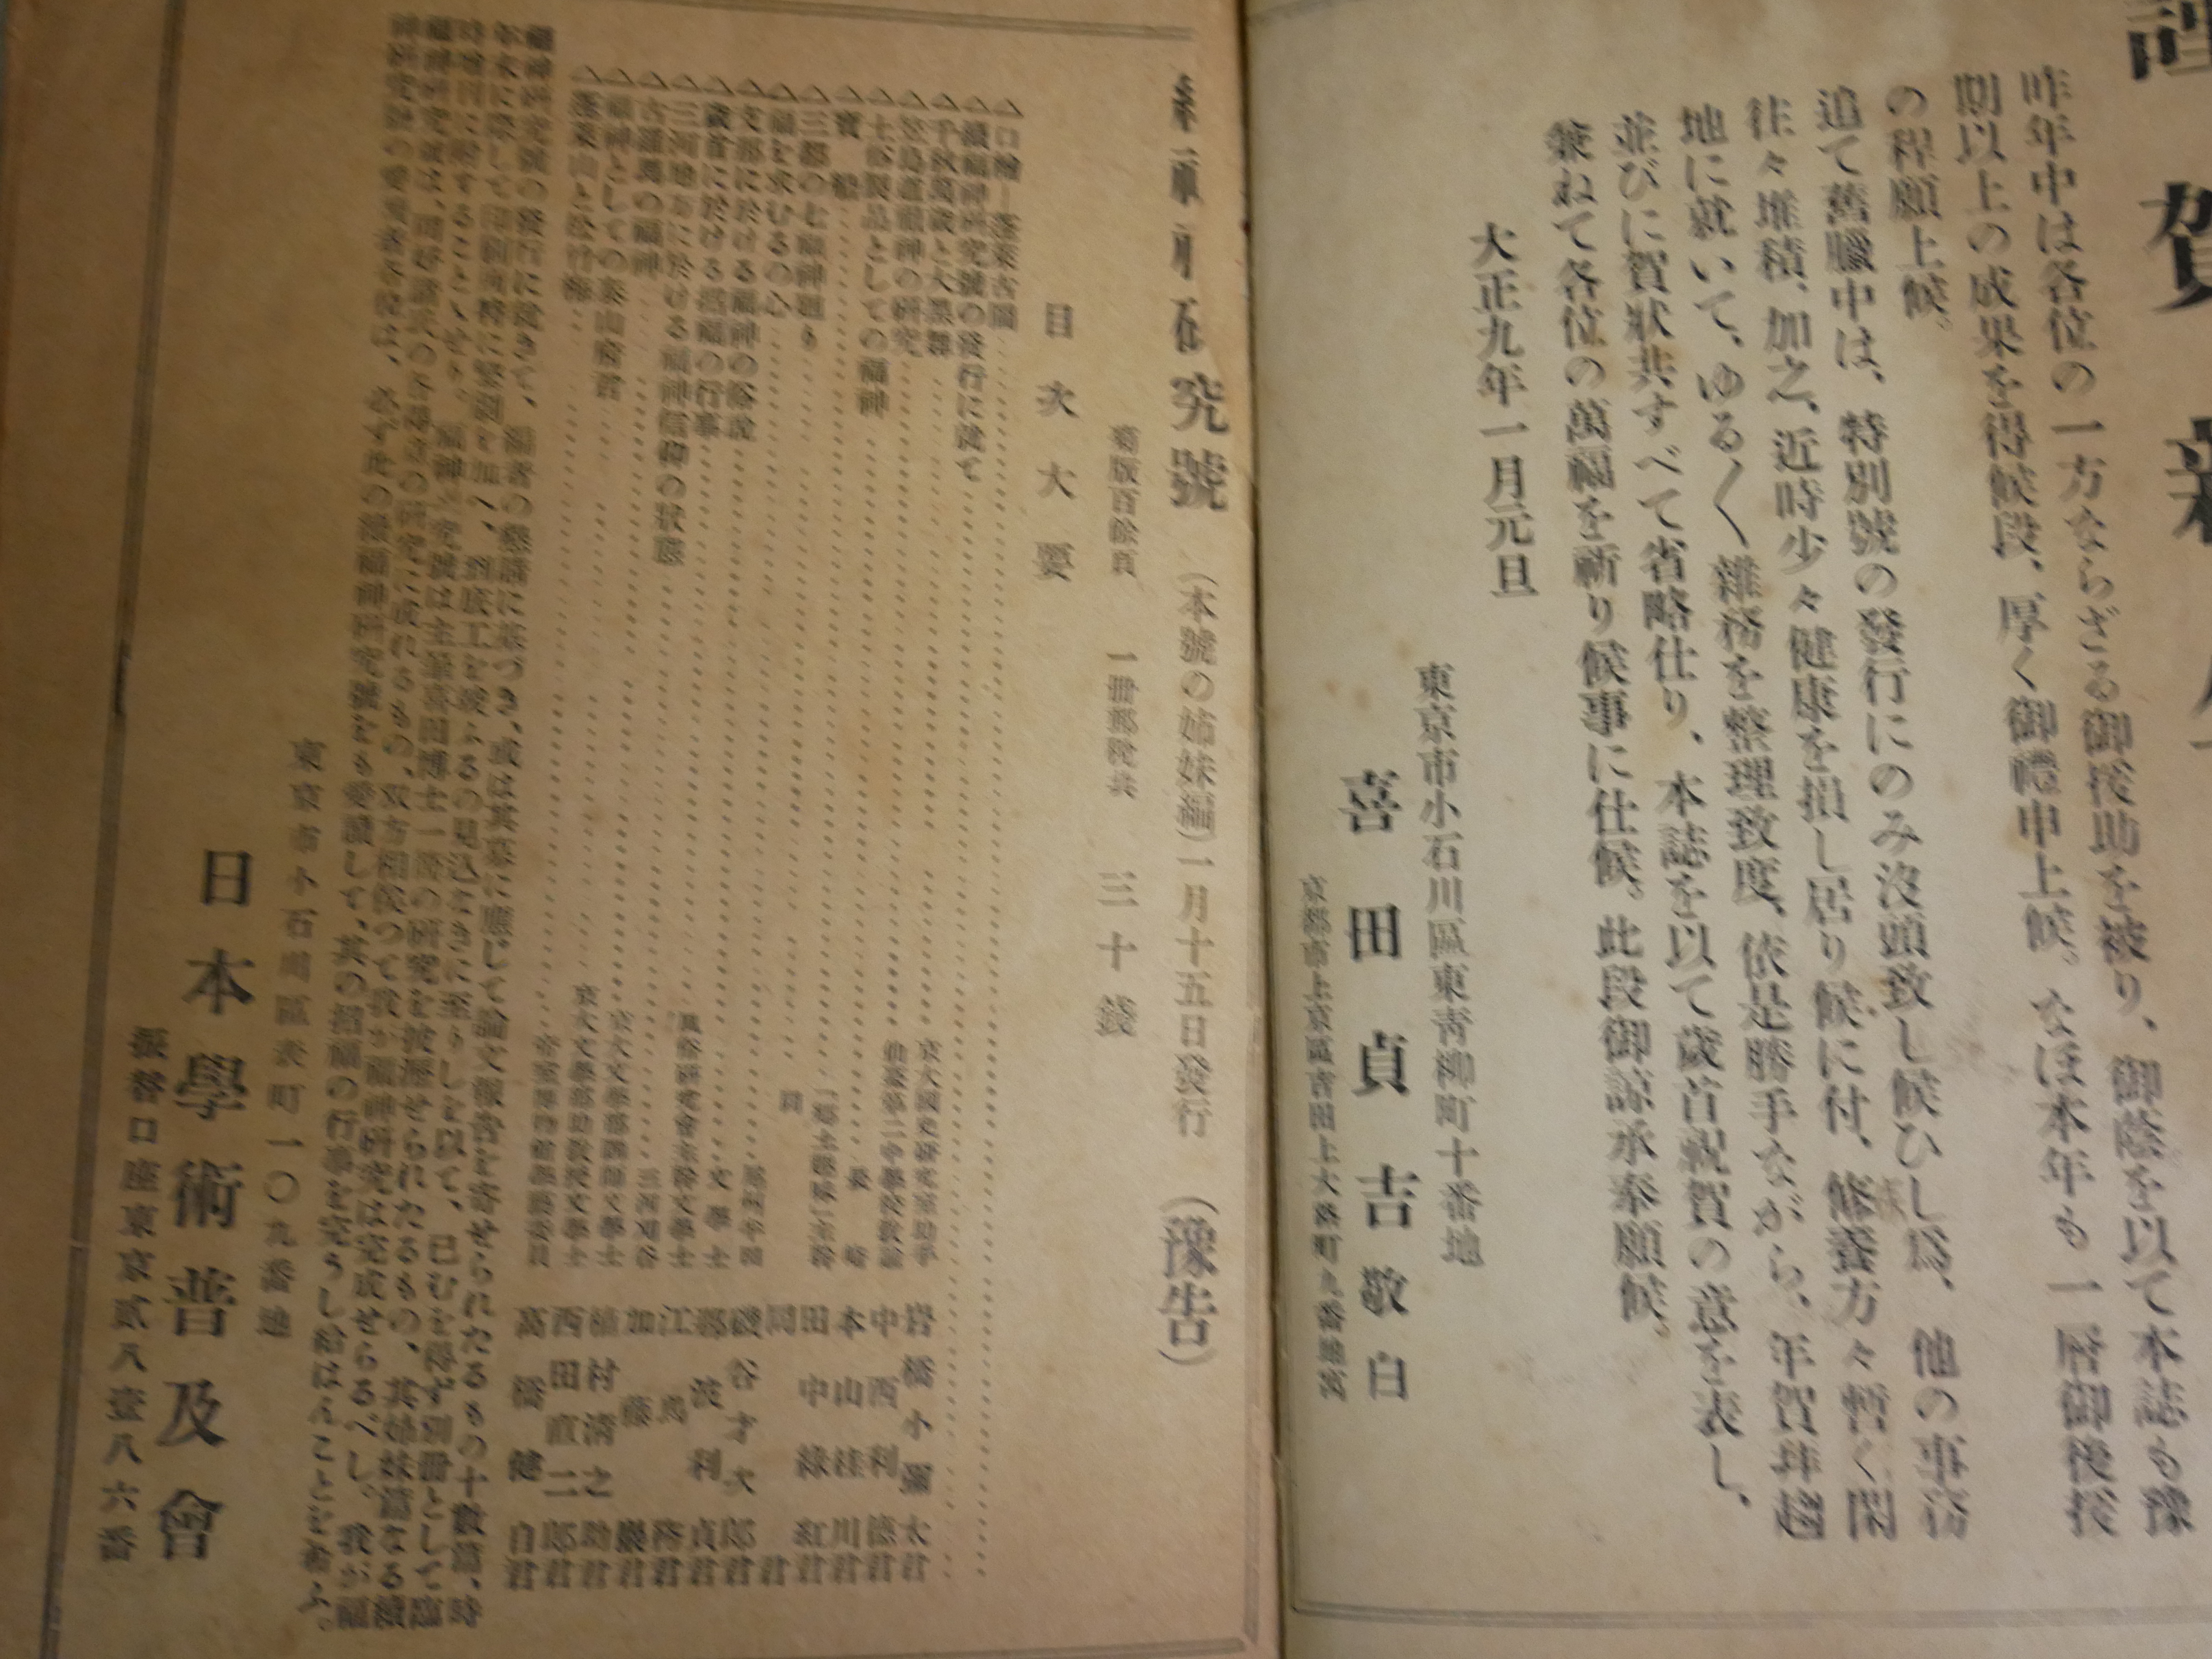 謹賀新
昨年中は各位の一方ならざる御援助を被り、御蔭を以て本誌も豫
期以上の成果を得候段、厚く御禮申上候。なほ本年も一層御後援
の程願上候。
追て舊臘中は、特別號の發行にのみ沒頭致し候ひし爲、他の事務
往々堆積、加之、近時少々健康を損し居り候に付、修養方々暫く閑
地に就いて、ゆる〱雜務を整理致度、依是勝手ながら、年賀拜趨
並びに賀狀共すべて省略仕り、本誌を以て歲首祝賀の意を表し、
兼ねて各位の萬福を祈り候事に仕候。此段御諒承奉願候。
大正九年一月元旦
東京市小石川區東靑柳町十番地
喜田貞吉敬白
京都市上京區吉田上大路町九番地寓
究號 (本號の姉妹編) 一月十五日發行 (豫告)
菊版百餘頁 一册郵稅共 三十錢
目次大要
△口繪―蓬萊古圖
△續福神研究號の發行に就て
△千秋萬歲と大黑舞 京大國史研究室助手 岩橋小彌太君
△笠島道祖神の研究 仙臺第二中學校敎諭 中西利德君
△土俗製品としての福神 長崎 本山桂川君
△寶船 「鄕土趣味」主幹 田中綠紅君
△三都の七福神廻り 同 同君
△福を求むるの心 尾州半田 磯谷才次郎君
△支那に於ける福神の俗說 文學士 那波利貞君
△歲首に於ける招福の行事 風俗研究會主幹文學士 江馬務君
△三河地方に於ける福神信仰の狀態 三河刈谷 加藤巖君
△古羅馬の福神 京大文學部講師文學士 植村淸之助君
△福神としての泰山府君 京大文學部助敎授文學士 西田直二郎君
△蓬萊山と松竹梅 帝室博物館學藝委員 高橋健自君
福神研究號の發行に就きて、編者の懇請に基づき、或は其募に應じて論文報吿を寄せられたるもの十數篇、時
年末に際して印刷同時に繁劇を加へ、到底工を竣ふるの見込なきに至りしを以て、已むを得ず別册として臨
時增刊に附することゝせり。福神研究號は主筆喜田博士一箇の硏究を披瀝せられたるもの、其姉妹篇なる續
福神硏究號は、同好諸氏の各得意の硏究に成れるもの、双方相俟つて我が福神硏究は完成せらるべし。我が福
神硏究號の愛讀者各位は、必ず此の續福神硏究號をも愛讀して、其の招福の行事を完うし給はんことを希ふ。
東京市小石川區表町一〇九番地
日本學術普及會
振替口座東京貳八壹八六番